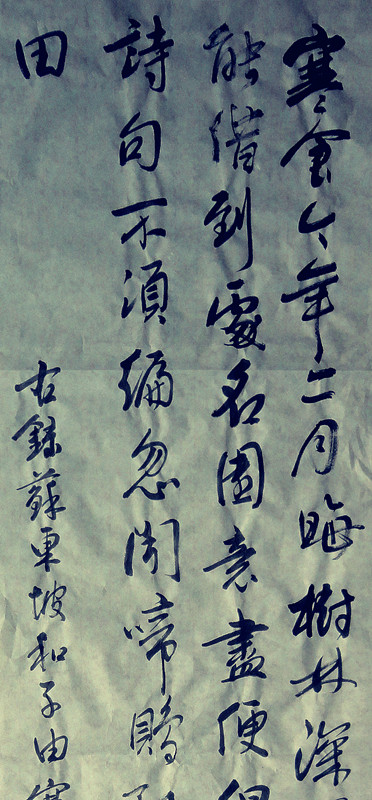 寒食今年二月晦樹林深
能借到處名園意盡便但
詩句不須編忽聞啼鵙
田
右錄蘇東坡和子由寒